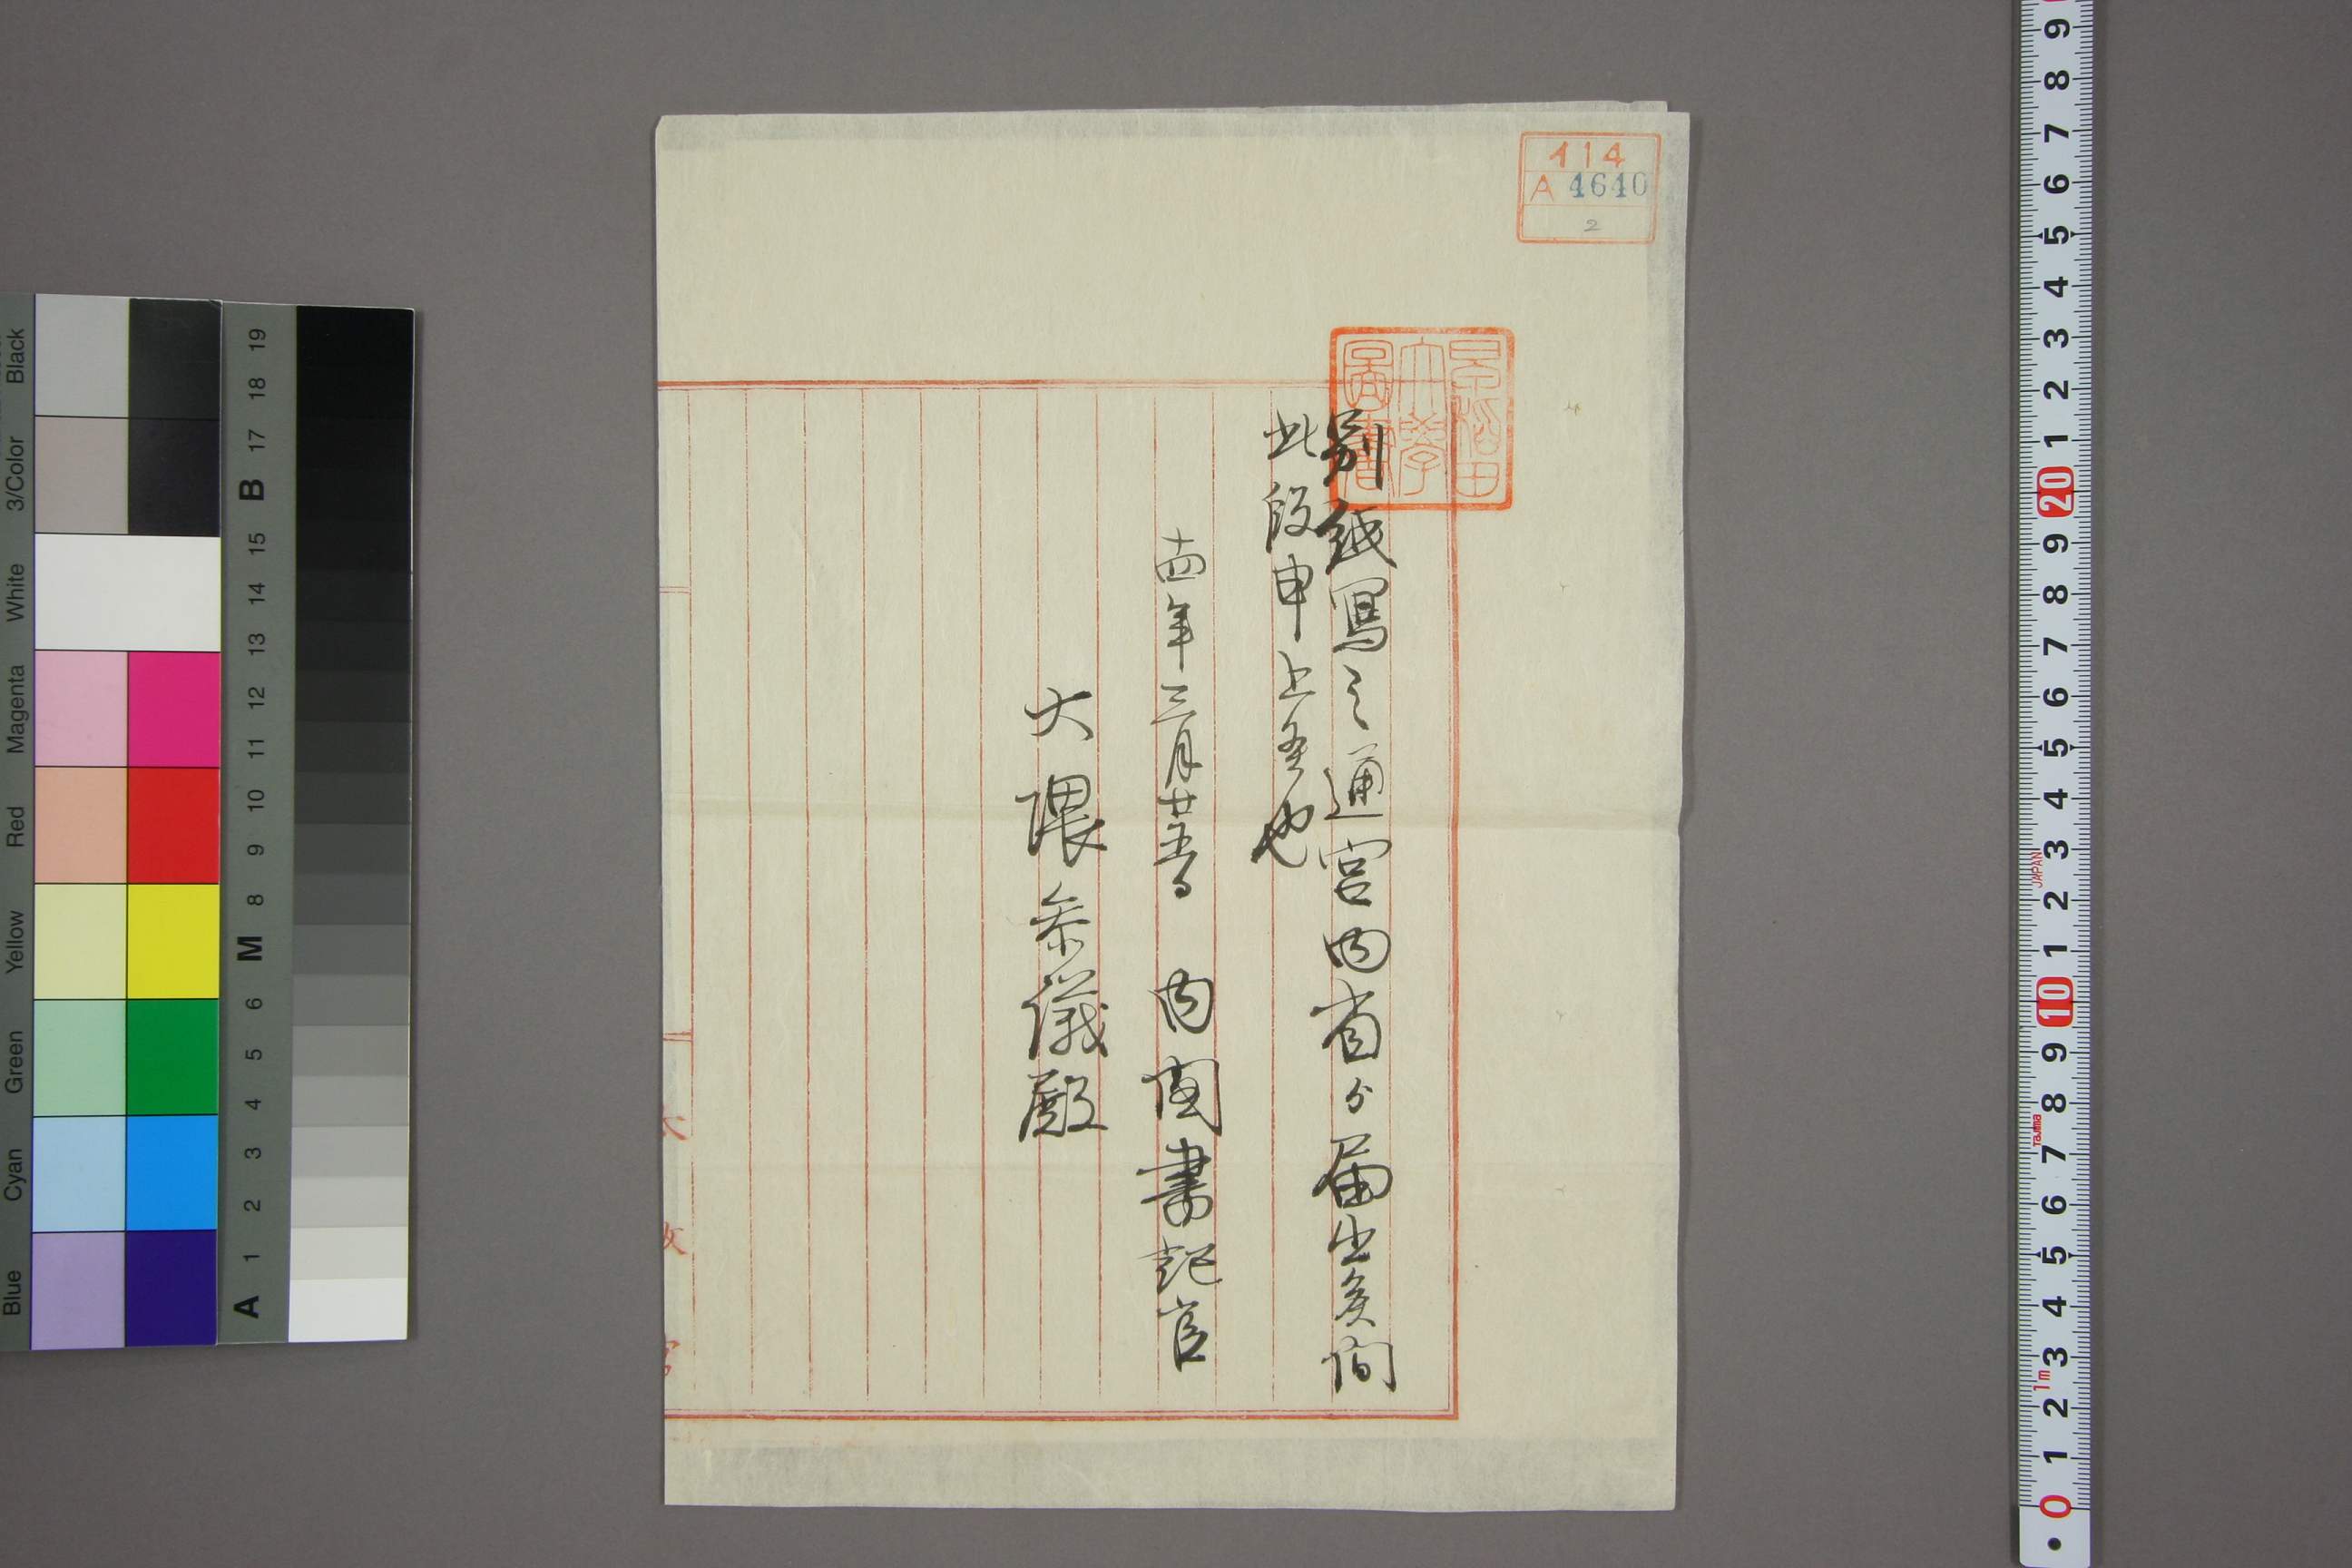 414
A 4640
2
早稲田
大學
圖書
別紙写之通宮内省ゟ届出候間
此段申上候也
十四年三月廿五日 内閣書記官
大隈参議殿
Black
3/Color
White
Magenta
Red
Yellow
Green
Cyan
Blue
19
18
17
B
15
14
13
12
11
10
9
8
M
6
5
4
3
2
1
A
9
8
7
6
5
4
3
2
1
20
9
8
7
6
5
4
3
JAPAN
2
1
10
9
8
Tajima
7
6
5
4
3
1m
2
1
0